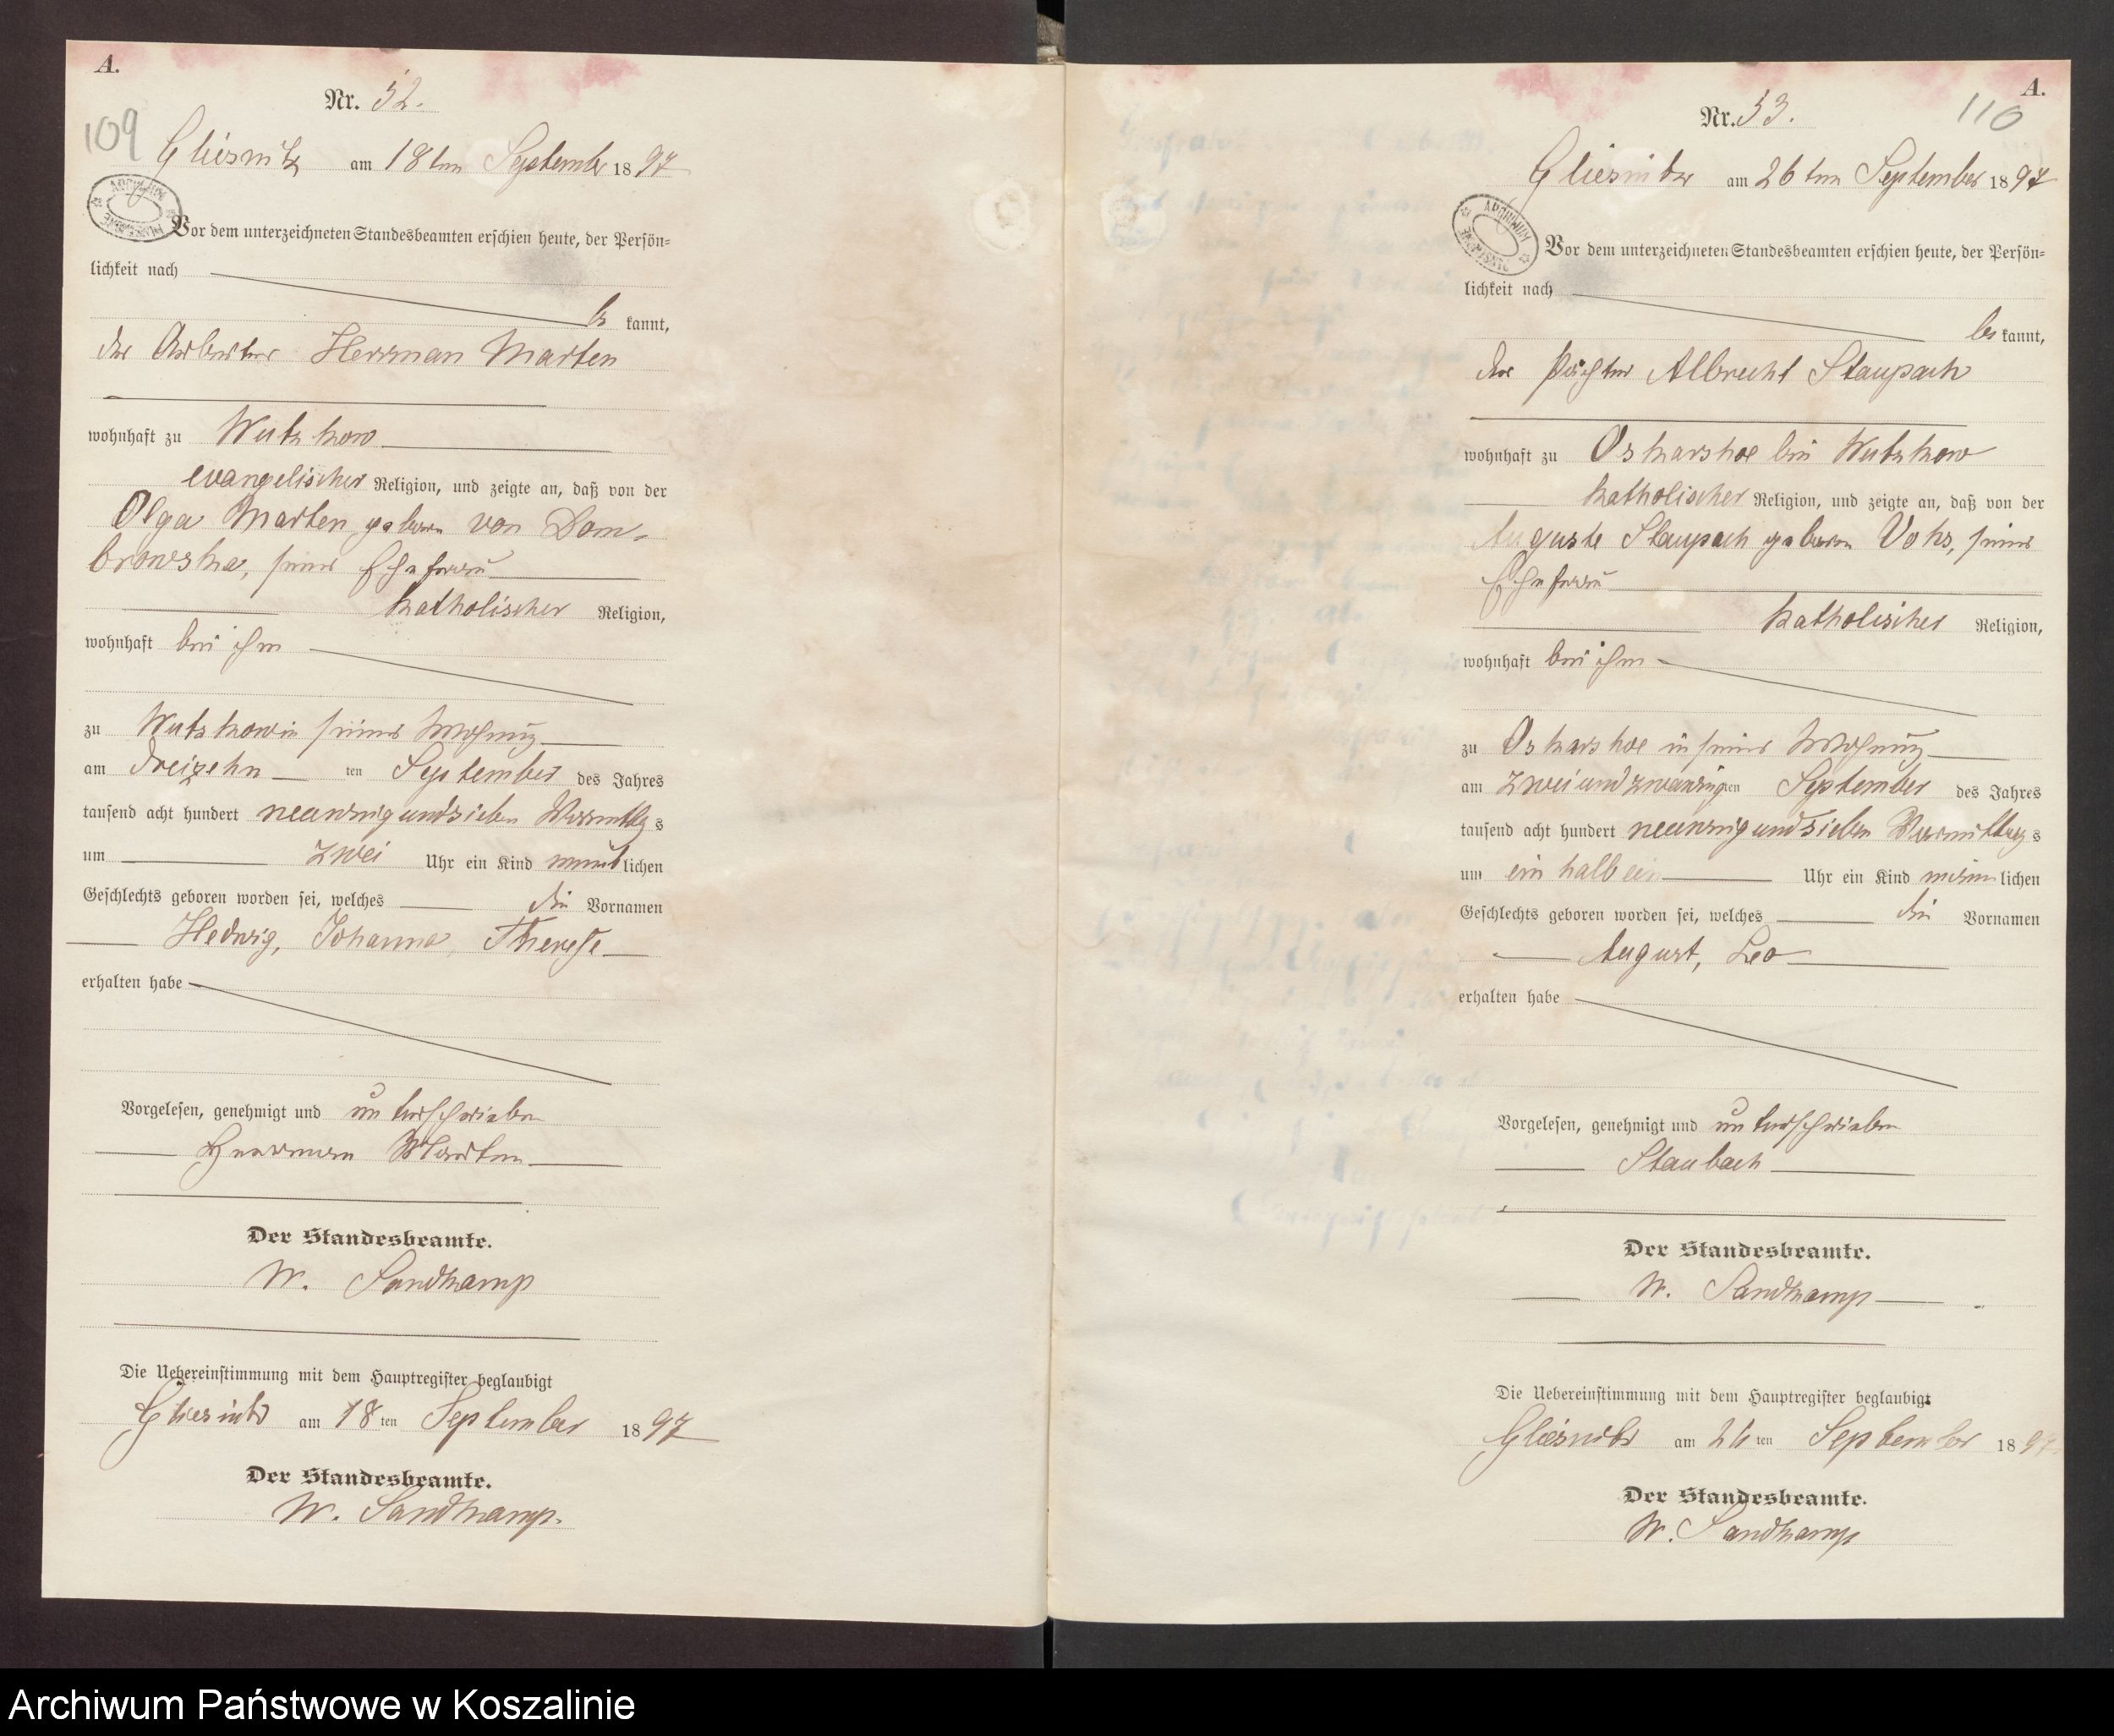 A.
Nr. 52.
109
Gliesnitz am 18ten September 1897
Vor dem unterzeichneten Standesbeamten erschien heute, der Persön=
lichkeit nach
be kannt,
der Arbeiter Herrman Marten
wohnhaft zu Wutzkow
evangelischer Religion, und zeigte an, daß von der
Olga Marten geboren von Dom-
browska, seiner Ehefrau
katholischer Religion,
wohnhaft bei ihm
zu Wutzkow in seiner Wohnung
am dreizehn ten September des Jahres
tausend acht hundert neunzig und sieben Vormittag s
um zwei Uhr ein Kind weiblichen
Geschlechts geboren worden sei, welches die Vornamen
Hedwig, Johanna, Therese
erhalten habe
Vorgelesen, genehmigt und unterschrieben
Herrman Marten
Der Standesbeamte.
W. Sandkamp
Die Uebereinstimmung mit dem Hauptregister beglaubigt
Gliesnitz am 18 ten September 1897
Der Standesbeamte.
W. Sandkamp.
A.
Nr. 53.
110
Gliesnitz am 26ten September 1897
Vor dem unterzeichneten Standesbeamten erschien heute, der Persön=
lichkeit nach
be kannt,
der Pächter Albrecht Staupach
wohnhaft zu Oskarshoe bei Wutzkow
katholischer Religion, und zeigte an, daß von der
Auguste Staupach geboren Vohs, seiner
Ehefrau
katholischer Religion,
wohnhaft bei ihm
zu Oskarshoe in seiner Wohnung
am zweiundzwanzigten September des Jahres
tausend acht hundert neunzig und sieben Vormittag s
um ein halb ein Uhr ein Kind männlichen
Geschlechts geboren worden sei, welches die Vornamen
August, Leo
erhalten habe
Vorgelesen, genehmigt und unterschrieben
Staubach
Der Standesbeamte.
W. Sandkamp
Die Uebereinstimmung mit dem Hauptregister beglaubigt
Gliesnitz am 26 ten September 1897
Der Standesbeamte.
W. Sandkamp
Archiwum Państwowe w Koszalinie